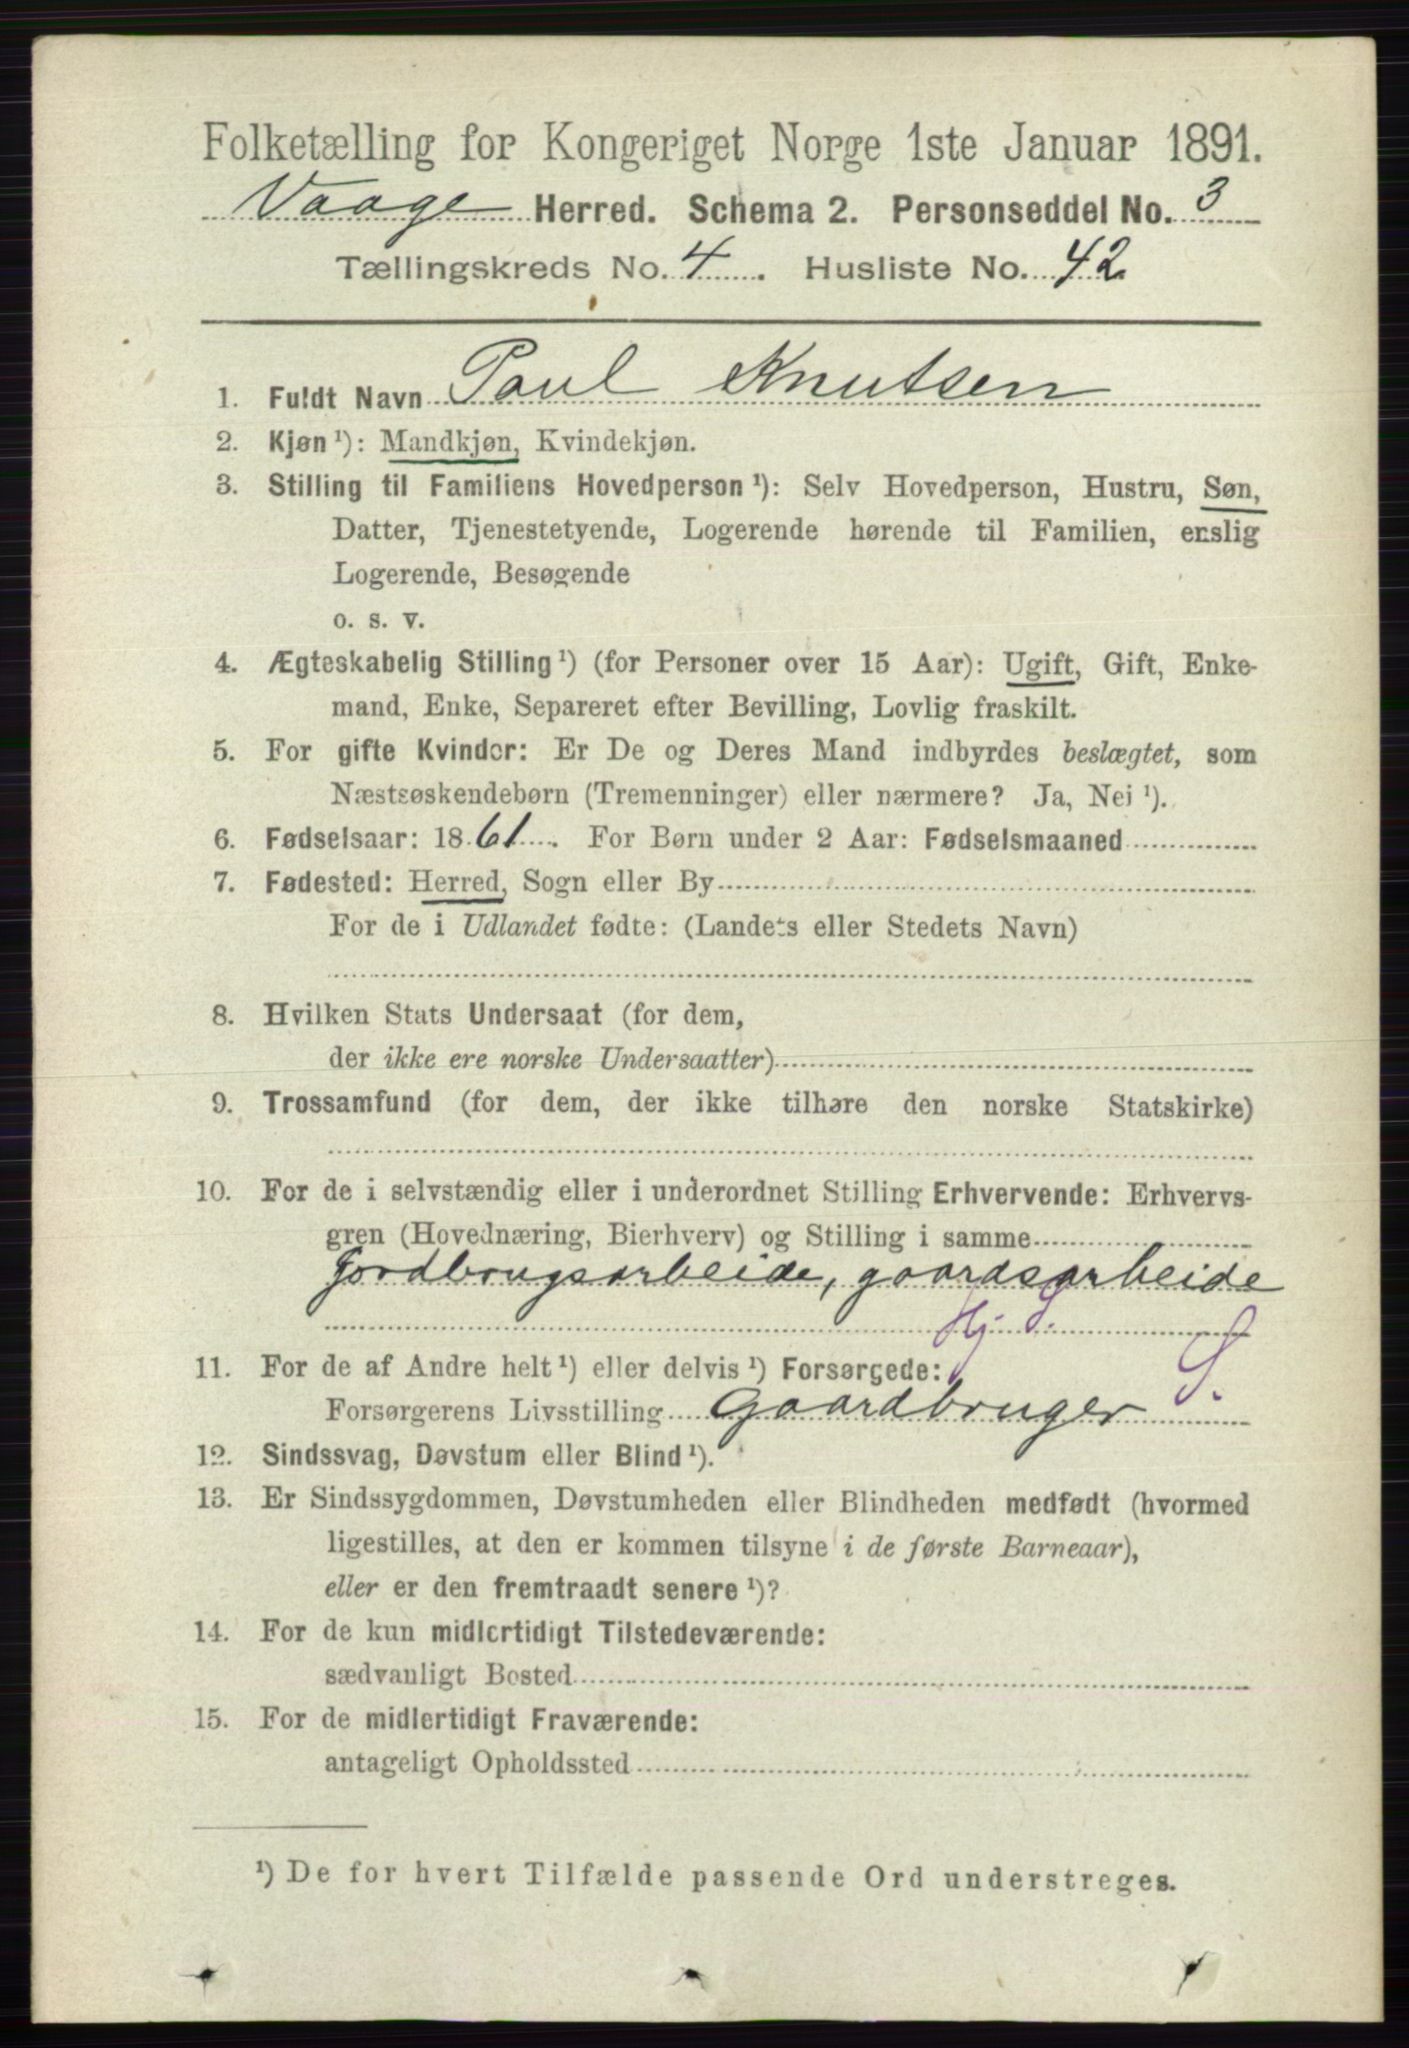 Folketælling for Kongeriget Norge 1ste Januar 1891.
Vaage Herred. Schema 2. Personseddel No. 3
Tællingskreds No. 4. Husliste No. 42
1. Fuldt Navn Paul Knutsen
2. Kjøn ¹): Mandkjøn, Kvindekjøn.
3. Stilling til Familiens Hovedperson ¹): Selv Hovedperson, Hustru, Søn,
Datter, Tjenestetyende, Logerende hørende til Familien, enslig
Logerende, Besøgende
o. s. v.
4. Ægteskabelig Stilling ¹) (for Personer over 15 Aar): Ugift, Gift, Enke-
mand, Enke, Separeret efter Bevilling, Lovlig fraskilt.
5. For gifte Kvinder: Er De og Deres Mand indbyrdes beslægtet, som
Næstsøskendebørn (Tremenninger) eller nærmere? Ja, Nei ¹).
6. Fødselsaar: 1861. For Børn under 2 Aar: Fødselsmaaned
7. Fødested: Herred, Sogn eller By
For de i Udlandet fødte: (Landets eller Stedets Navn)
8. Hvilken Stats Undersaat (for dem,
der ikke ere norske Undersaatter)
9. Trossamfund (for dem, der ikke tilhøre den norske Statskirke)
10. For de i selvstændig eller i underordnet Stilling Erhvervende: Erhvervs-
gren (Hovednæring, Bierhverv) og Stilling i samme
Jordbrugsarbeide, gaardsarbeide
Hj. S.
11. For de af Andre helt ¹) eller delvis ¹) Forsørgede:
Forsørgerens Livsstilling Gaardbruger S.
12. Sindssvag, Døvstum eller Blind ¹).
13. Er Sindssygdommen, Døvstumheden eller Blindheden medfødt (hvormed
ligestilles, at den er kommen tilsyne i de første Barneaar),
eller er den fremtraadt senere ¹)?
14. For de kun midlertidigt Tilstedeværende:
sædvanligt Bosted
15. For de midlertidigt Fraværende:
antageligt Opholdssted
¹) De for hvert Tilfælde passende Ord understreges.